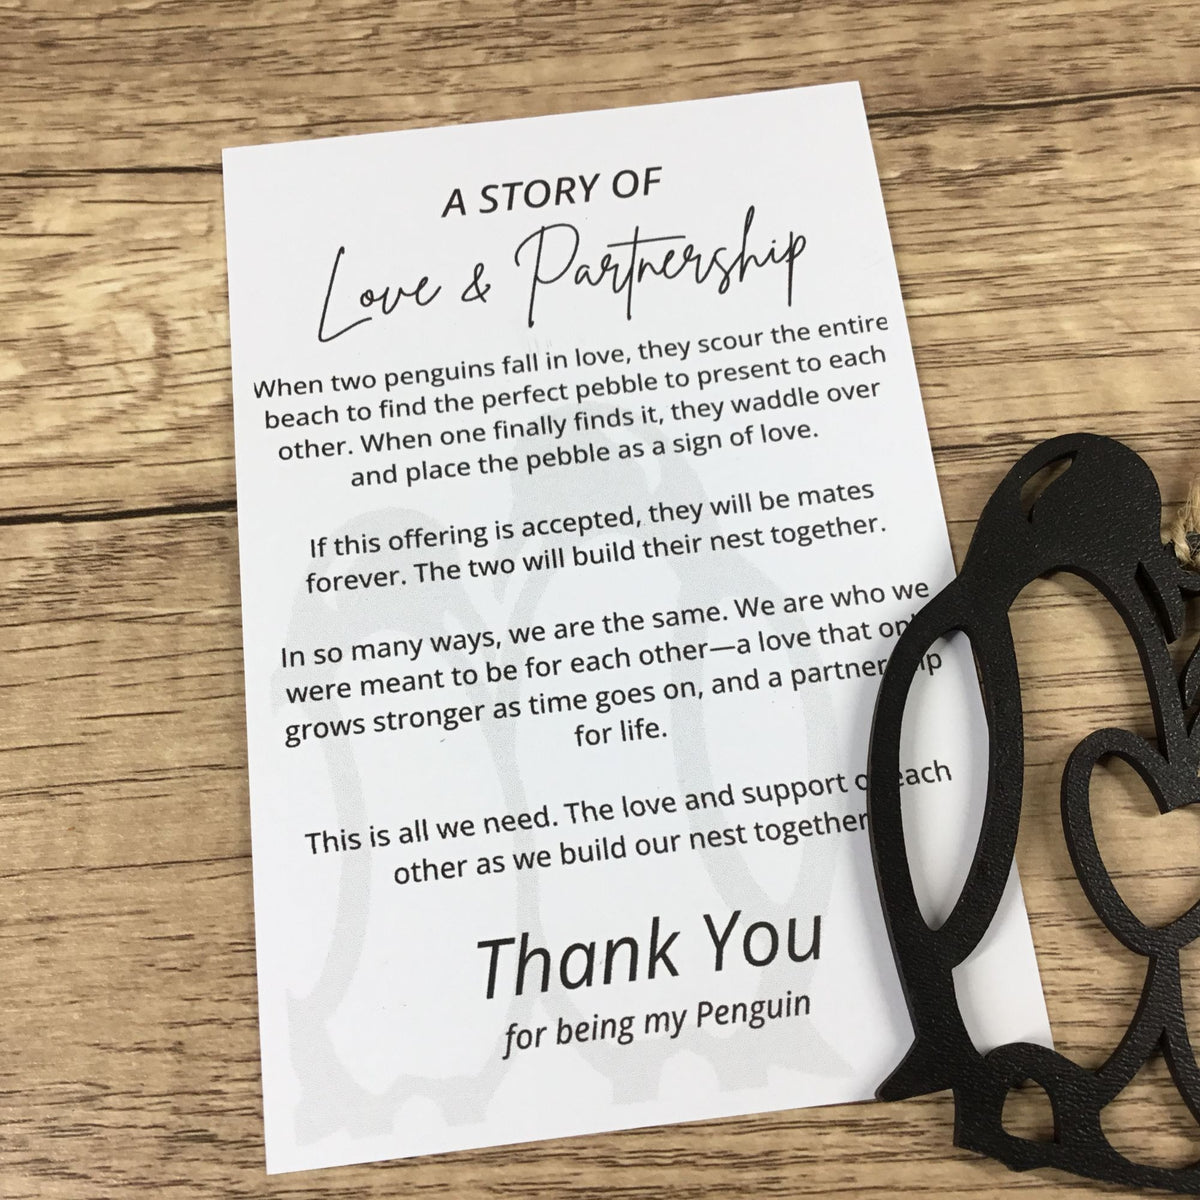 A STORY OF
Love & Partnership
When two penguins fall in love, they scour the entire
beach to find the perfect pebble to present to each
other. When one finally finds it, they waddle over
and place the pebble as a sign of love.
If this offering is accepted, they will be mates
forever. The two will build their nest together.
In so many ways, we are the same. We are who we
were meant to be for each other—a love that only
grows stronger as time goes on, and a partnership
for life.
This is all we need. The love and support of each
other as we build our nest together
Thank You
for being my Penguin